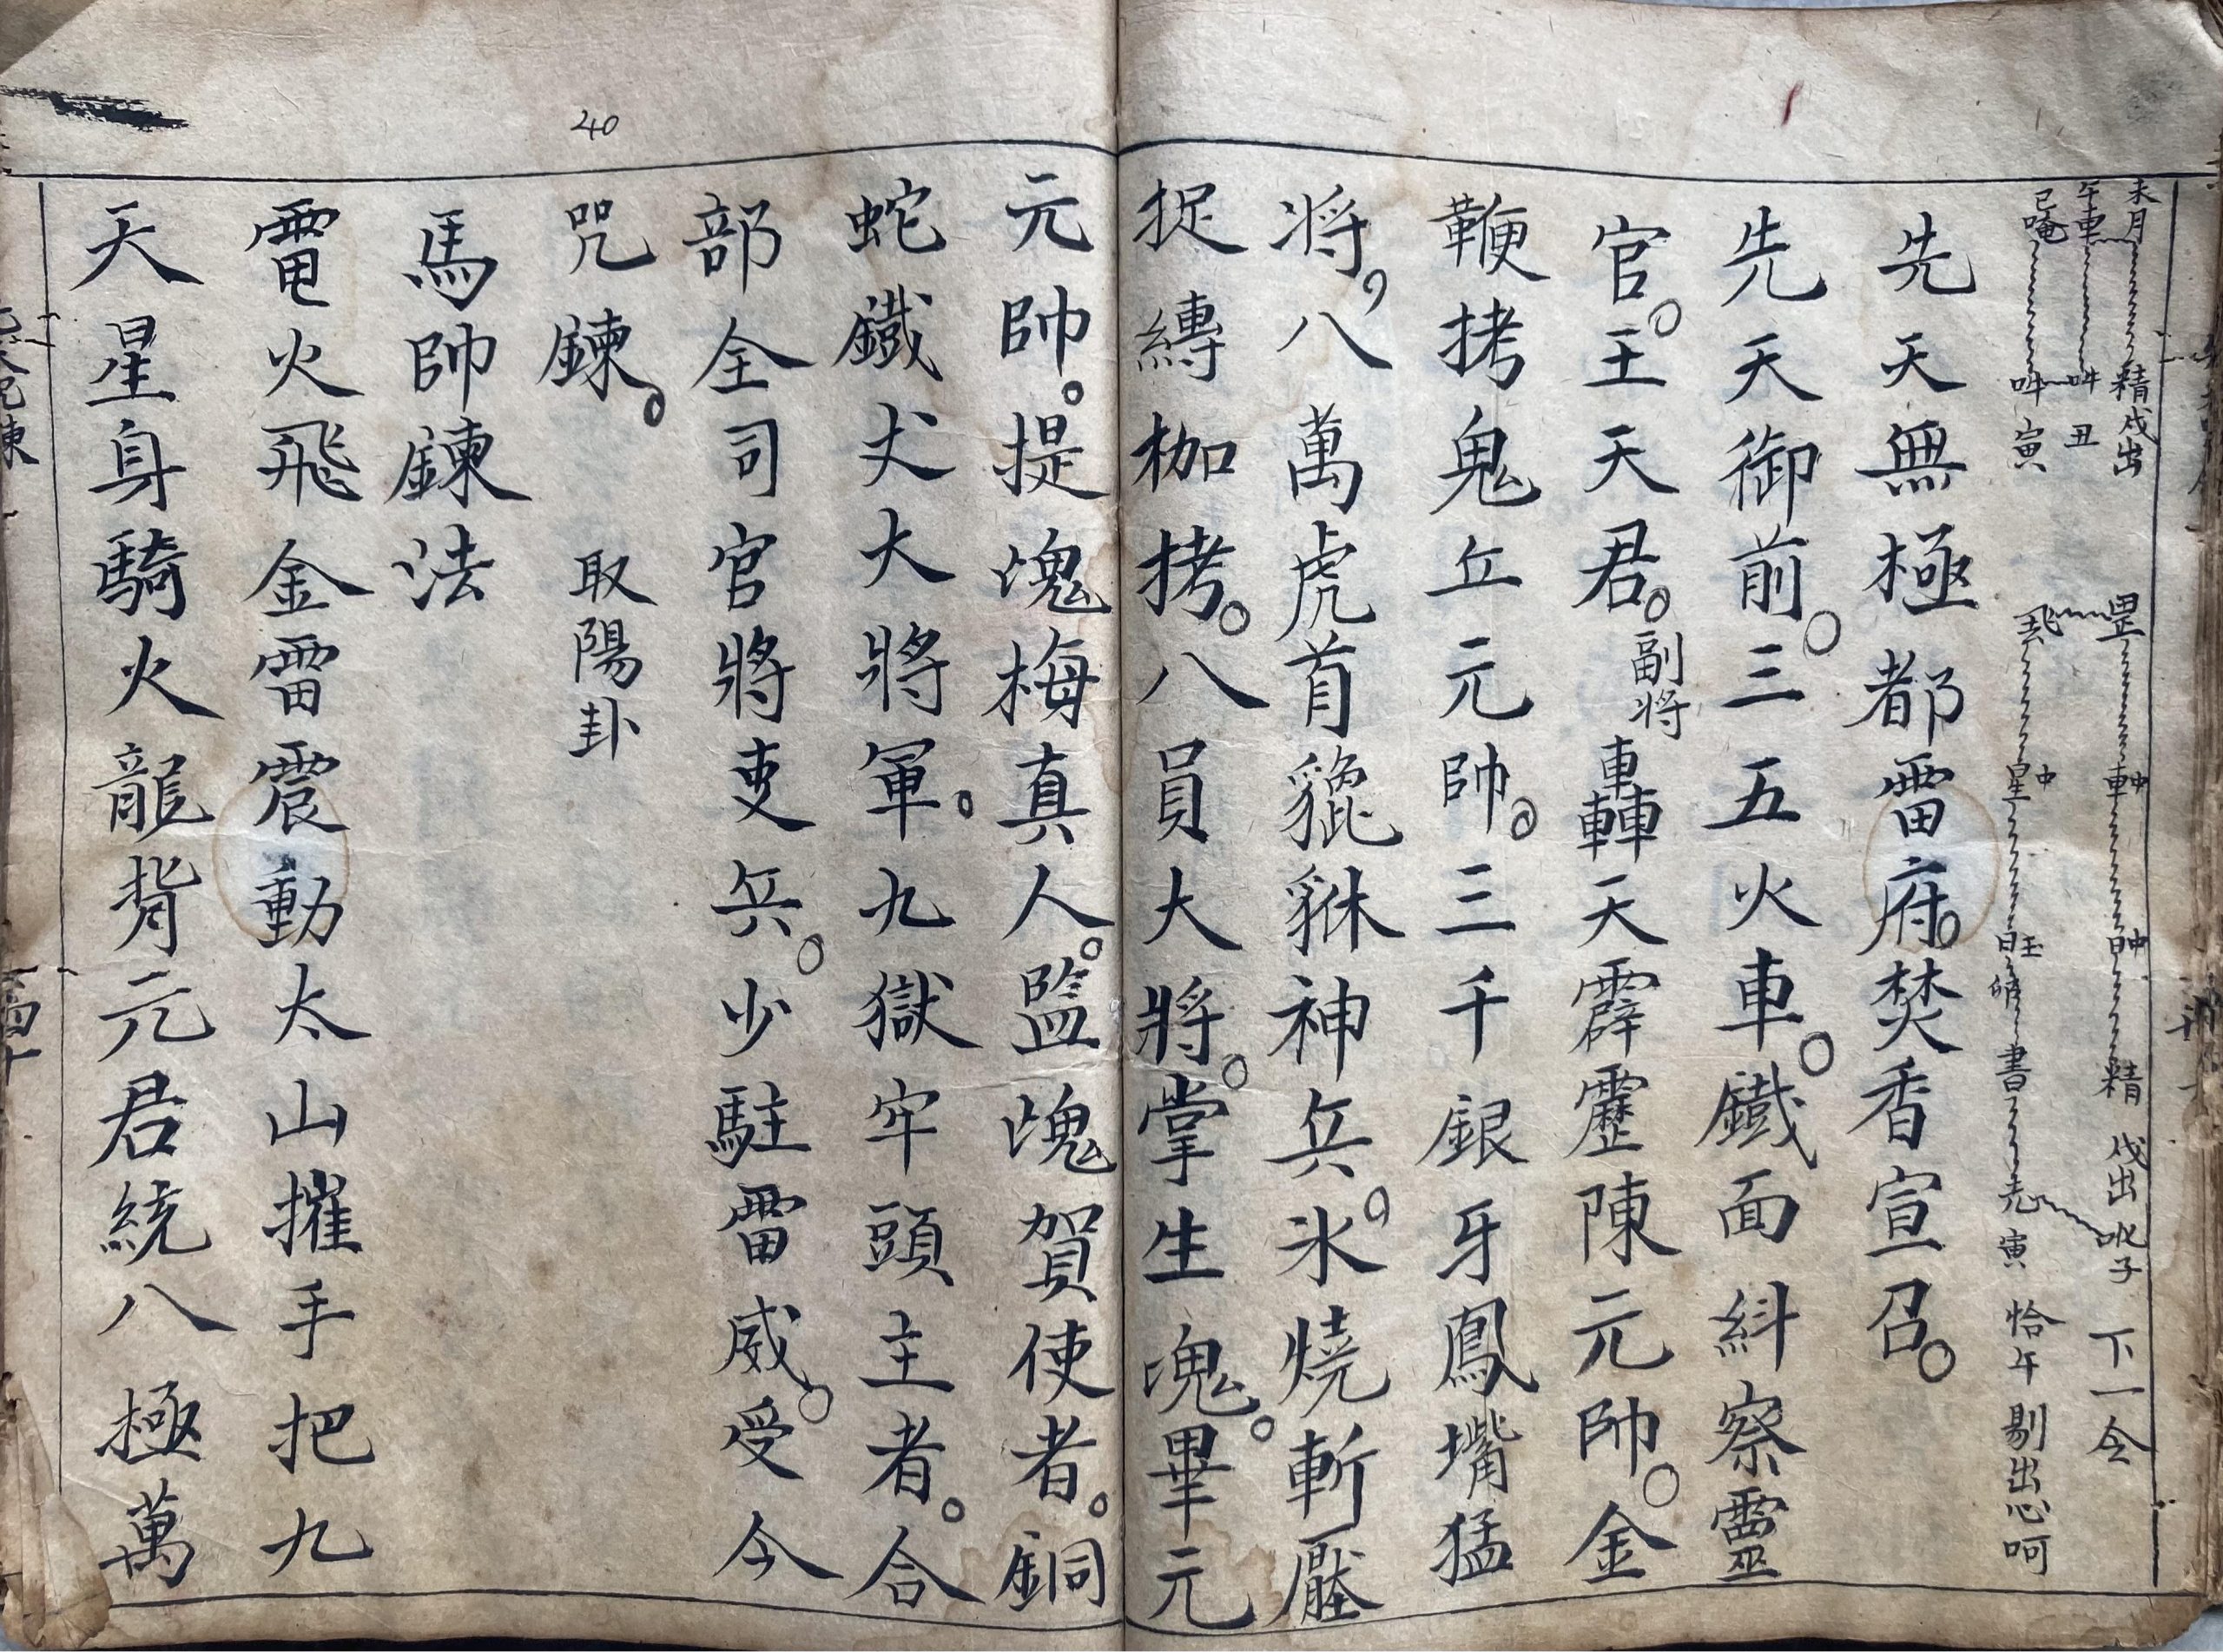 未月 精戌出 罡 車中 日中 精 戌出 吪子 下一令
午車 吽 丑
巳唵 吽 寅 星中 書 寅 恰午 剔出心呵
先天無極都雷府。焚香宣召。
先天御前。三五火車。鐵面糾察靈
官。王天君。副将轟天霹靂陳元帥。金
鞭拷鬼丘元帥。三千銀牙鳳嘴猛
将。八萬虎首貔貅神兵。氷燒斬壓
捉縳枷拷。八員大將。掌生魂。畢元
元帥。提魂梅真人。監魂賀使者。銅
蛇鐵丈大將軍。九獄牢頭主者。合
部全司官將吏兵。少駐雷威。受今
咒鍊。 取陽卦
40
馬帥鍊法
電火飛金雷震動太山摧手把九
天星身騎火龍背元君統八極萬
四十